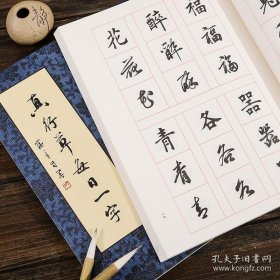 真行草每日一字
福 醉 花
福 醉 花
福 醉 花
器 各 青
器 各 青
各 青
孔夫子旧书网